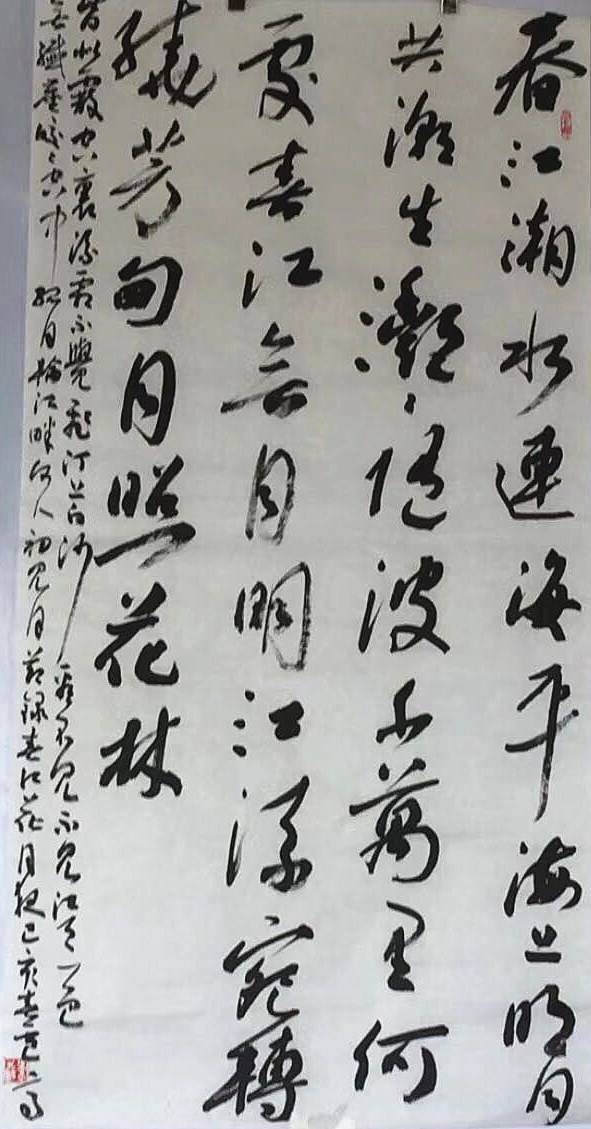 春江潮水連海平海上明月
共潮生灩々隨波千萬里何
處春江無月明江流宛轉
繞芳甸月照花林
皆似霰空裏流霜不覺飛汀上白沙看不見不見江天一色
無纖塵皎々空中孤月輪江畔何人初見月節錄春江花月夜己亥春